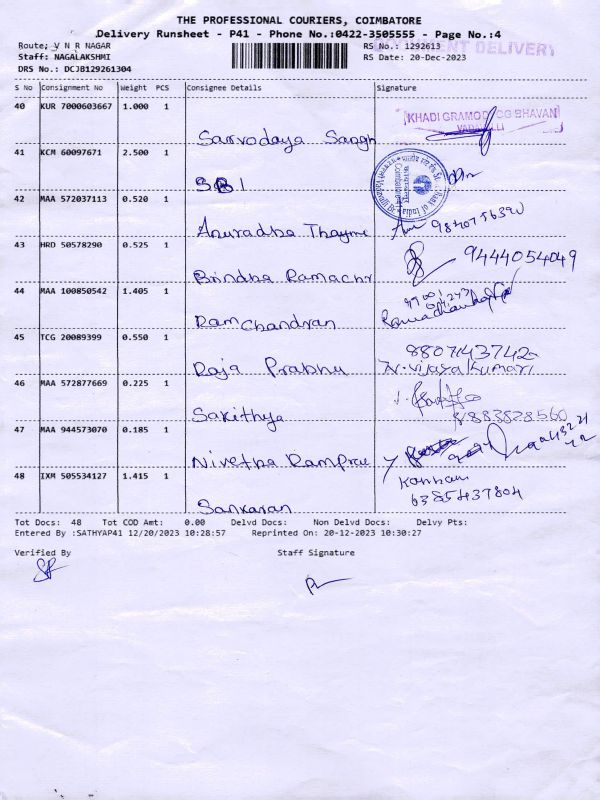 THE PROFESSIONAL COURIERS, COIMBATORE
Delivery Runsheet - P41 - Phone No.:0422-3505555 - Page No.:4
Route: V N R NAGAR RS No.: 1292613 DELIVERY
Staff: NAGALAKSHMI RS Date: 20-Dec-2023
DRS No.: DCJB129261304
S No Consignment No Weight PCS Consignee Details Signature
40 KUR 7000603667 1.000 1 KHADI GRAMOD BHAVAN
Sarvodaya Sangh
41 KCM 60097671 2.500 1
SBI
42 MAA 572037113 0.520 1
Anuradha 9840756390
43 HRD 50578290 0.525 1 9444054049
Brindha Ramachr
44 MAA 100850542 1.405 1
Ram Chandran Ramachandran
45 TCG 20089399 0.550 1 8807143742
Raja Prabhu N. Vijayalkumari
46 MAA 572877669 0.225 1
Sakithya 8883828560
47 MAA 944573070 0.185 1
Nivetha Ramprac
48 IXM 505534127 1.415 1 Kannan
Sankaran 6385437804
Tot Docs: 48 Tot COD Amt: 0.00 Delvd Docs: Non Delvd Docs: Delvy Pts:
Entered By :SATHYAP41 12/20/2023 10:28:57 Reprinted On: 20-12-2023 10:30:27
Verified By Staff Signature